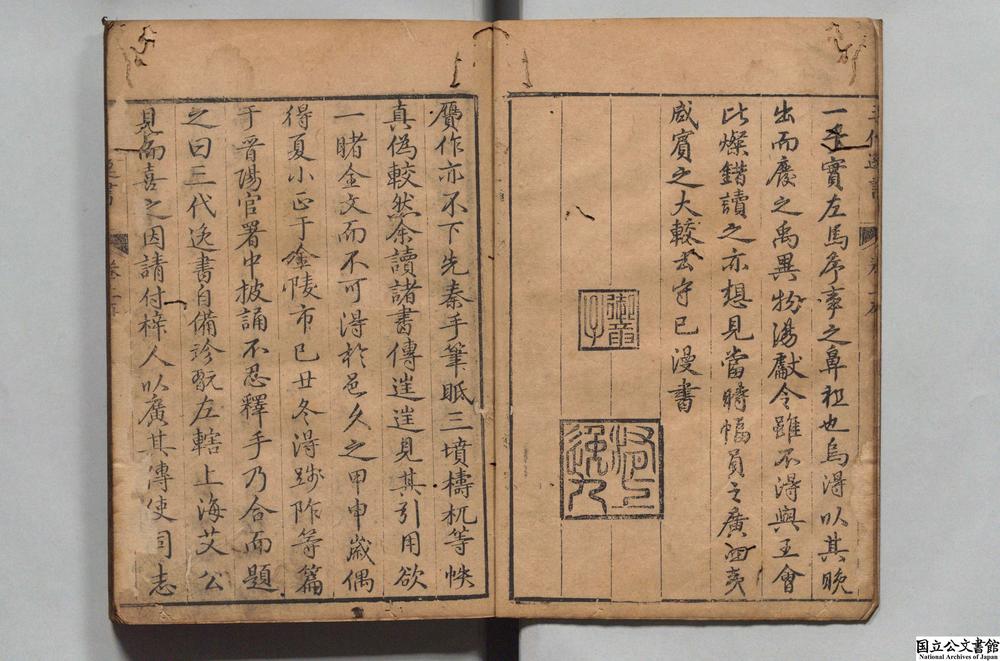 一乎實左馬序事之鼻祖也烏得以其晚
出而廢之禹異物湯獻令雖不得與王會
比燦錯讀之亦想見當時幅員之廣四夷
咸賓之大較云守已漫書
贗作亦不下先秦手筆眡三墳檮杌等帙
真偽較然余讀諸書傳逰逰見其引用欲
一睹金文而不可得於邑久之甲申歲偶
得夏小正于金陵市已丑冬得踐阼等篇
于晋陽官署中披誦不忍釋手乃合而題
之曰三代逸書自備珍翫左轄上海艾公
見而喜之因請付梓人以廣其傳使同志
国立公文書館
National Archives of Japan